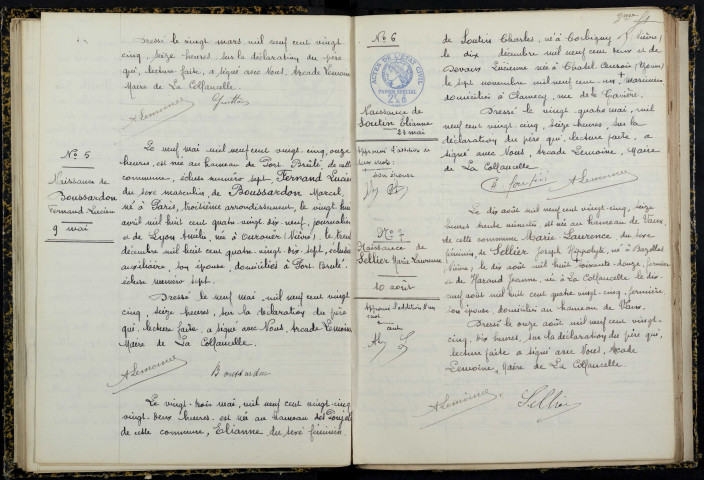 Dressé le vingt mars, mil neuf cent vingt
cinq, seize heures, sur la déclaration du père
qui, lecture faite, a signé avec Nous, Arcade Lemoine
Maire de La Collancelle.
ALemoine
Nº 5
Naissance de
Boussardon
Fernand Lucien
9 mai
Le neuf mai mil neuf cent vingt-cinq, onze
heures, est né au hameau de Port Brûlé de cette
commune, écluse numéro sept, Fernand Lucien
du sexe masculin, de Boussardon Marcel,
né à Paris, troisième arrondissement, le vingt huit
avril mil huit cent quatre vingt dix neuf, journalier
et de Lyon Amélie, née à Ourouër (Nièvre), le treize
décembre mil huit cent quatre-vingt-dix-sept, éclusière
auxiliaire, son épouse, domiciliés à Port-Brûlé,
écluse numéro sept.
Dressé le neuf mai, mil neuf cent vingt
cinq, seize heures, sur la déclaration du père
qui, lecture faite, a signé avec Nous, Arcade Lemoine
Maire de La Collancelle.
ALemoine Boussardon
Le vingt-trois mai, mil neuf cent vingt-cinq
vingt-deux heures, est née au hameau des
de cette commune, Elianne du sexe féminin,
Nº 6
ACTES DE L'ÉTAT CIVIL
PAPIER SPÉCIAL
Naissance de
Soutin Elianne
23 mai
son épouse
Nº 7
Naissance de
Sellier Marie Laurence
10 août
de Soutin Charles, né à Corbigny (Nièvre)
le dix décembre mil neuf cent deux et de
Devaux Lucienne née à Chatel-Censoir (Yonne)
le sept novembre mil neuf cent
domiciliés à Clamecy, rue de la
Dressé le vingt quatre mai, mil
neuf cent vingt-cinq, seize heures, sur la
déclaration du père qui, lecture faite, a
signé avec Nous, Arcade Lemoine, Maire
de La Collancelle.
ALemoine
Le dix août mil neuf cent vingt-cinq, seize
heures trente minutes, est née au hameau de Vaux
de cette commune Marie-Laurence du sexe
féminin, de Sellier Joseph Hippolyte, né à Bazolles
Nièvre, le dix août mil huit soixante-douze, fermier
et de Jeanne, née à La Collancelle le dix
neuf août mil huit cent quatre-vingt-cinq, fermière,
son épouse, domiciliés au hameau de Vaux.
Dressé le onze août mil neuf cent vingt-
cinq, dix heures, sur la déclaration du père qui,
lecture faite a signé avec Nous, Arcade
Lemoine, Maire de La Collancelle.
ALemoine Sellier